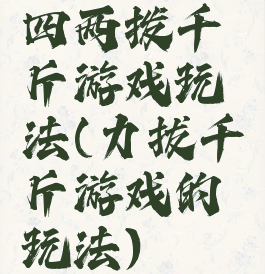 四两拨千
斤游戏玩
法(力拔千
斤游戏的
玩法)